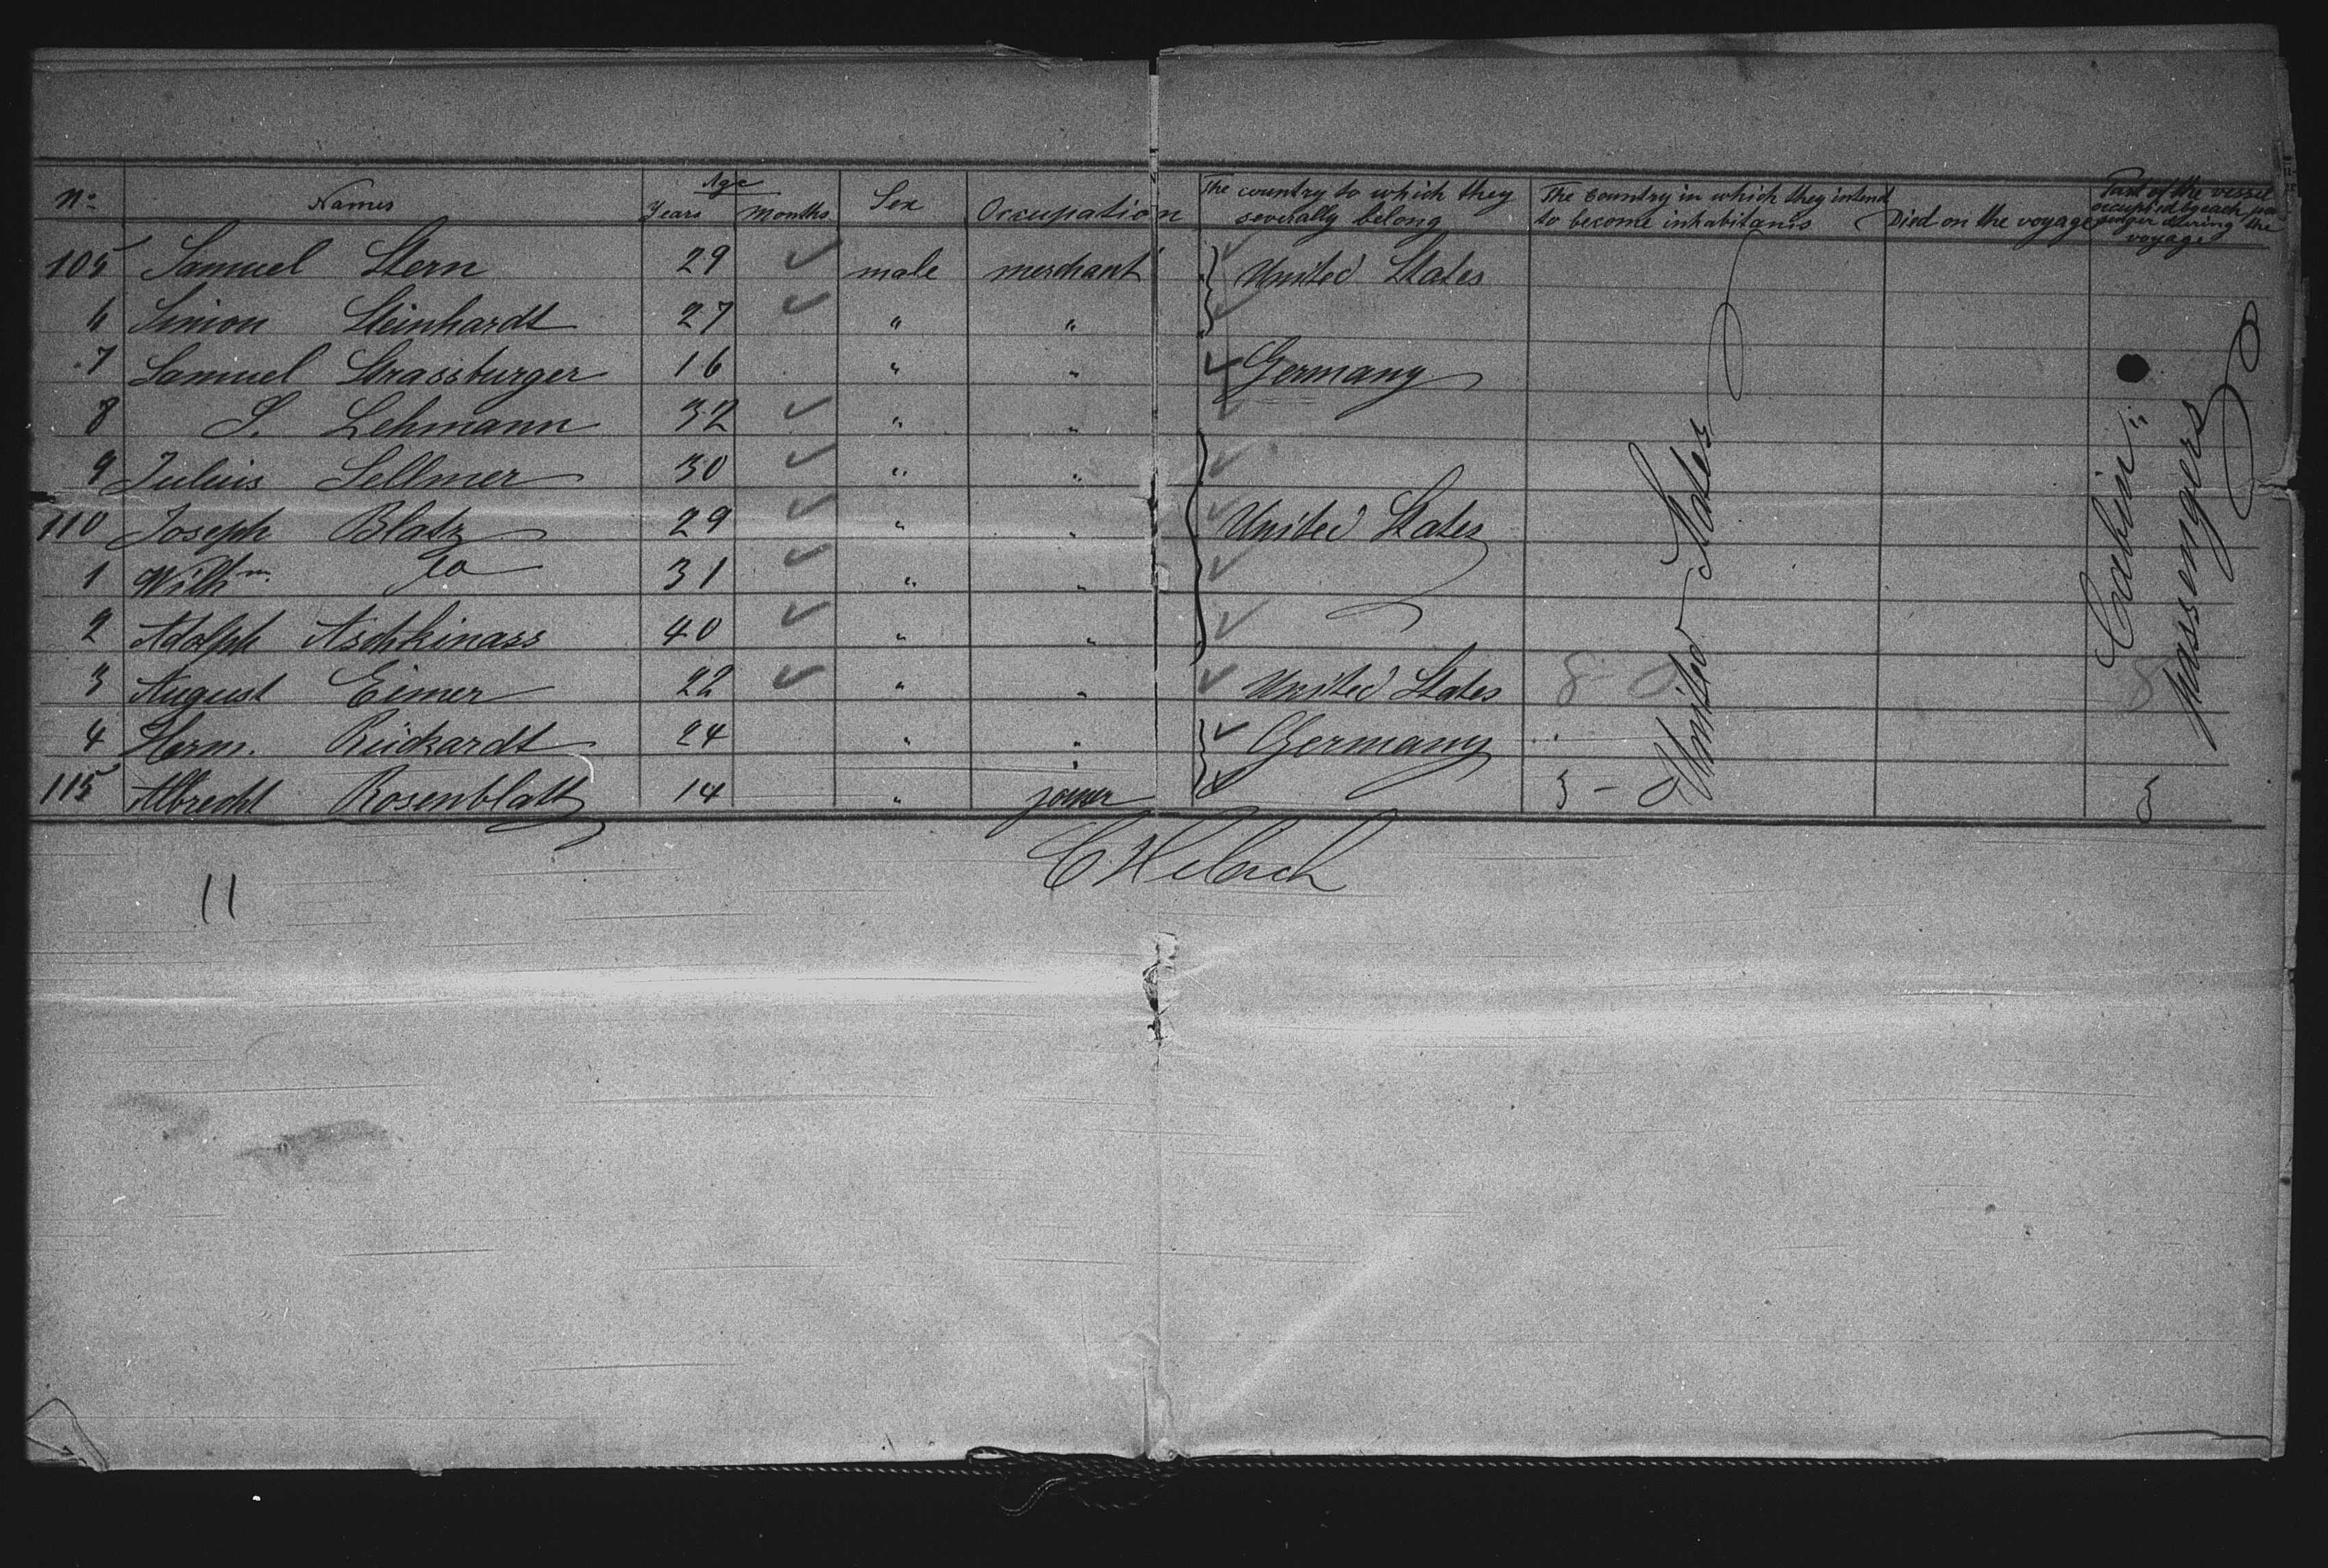 No Names Age Years Months Sex Occupation The country to which they severally belong The Country in which they intend to become inhabitants Died on the voyage Part of the vessel occupied by each passenger during the voyage
105 Samuel Stern 29 male merchant United States
6 Simon Steinhardt 27 " "
7 Samuel Strassburger 16 " " Germany
8 S. Lehmann 32 " "
9 Julius Sellmer 30 " "
110 Joseph Blatz 29 " " United States
1 Wilhm. do 31 " "
2 Adolph Aschkinass 40 " "
3 August Eimer 22 " " United States 8 - 8
4 Herm. Rückardt 24 " " Germany
115 Albrecht Rosenblatt 14 " joiner 3 - 3
United States
Cabin passengers
11